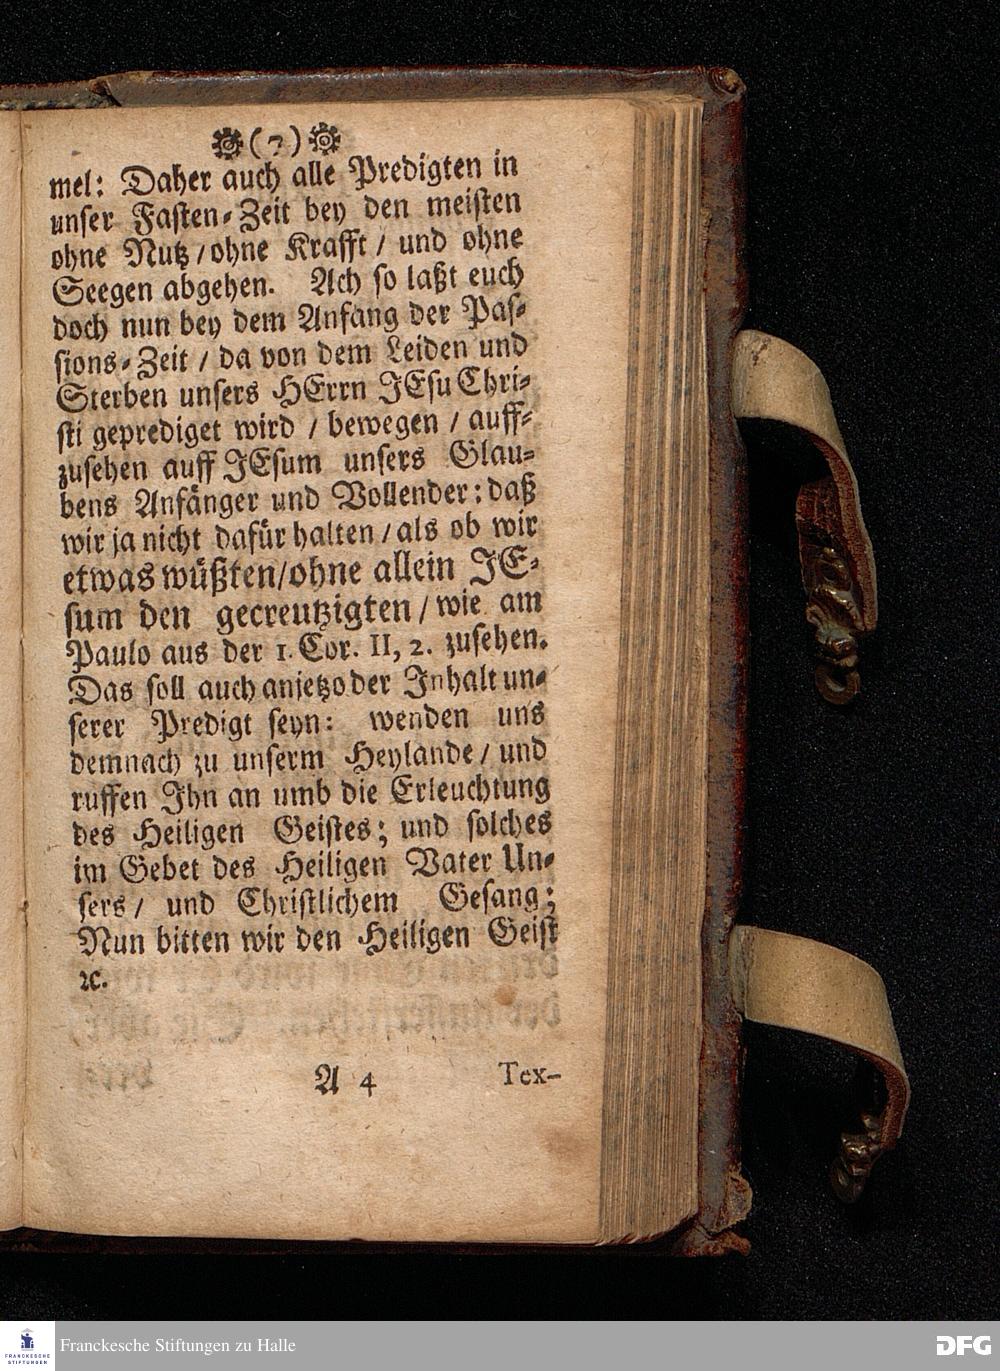 (7)
mel: Daher auch alle Predigten in
unser Fasten-Zeit bey den meisten
ohne Nutz / ohne Krafft / und ohne
Seegen abgehen. Ach so laßt euch
doch nun bey dem Anfang der Pas-
sions-Zeit / da von dem Leiden und
Sterben unsers HErrn JEsu Chri-
sti geprediget wird / bewegen / auff-
zusehen auff JEsum unsers Glau-
bens Anfänger und Vollender: daß
wir ja nicht dafür halten / als ob wir
etwas wüßten / ohne allein JE-
sum den gecreutzigten / wie am
Paulo aus der 1. Cor. II, 2. zusehen.
Das soll auch anjetzo der Inhalt un-
serer Predigt seyn: wenden uns
demnach zu unserm Heylande / und
ruffen Ihn an umb die Erleuchtung
des Heiligen Geistes; und solches
im Gebet des Heiligen Vater Un-
sers / und Christlichem Gesang:
Nun bitten wir den Heiligen Geist
ꝛc.
A 4 Tex-
FRANCKESCHE STIFTUNGEN
Franckesche Stiftungen zu Halle
DFG